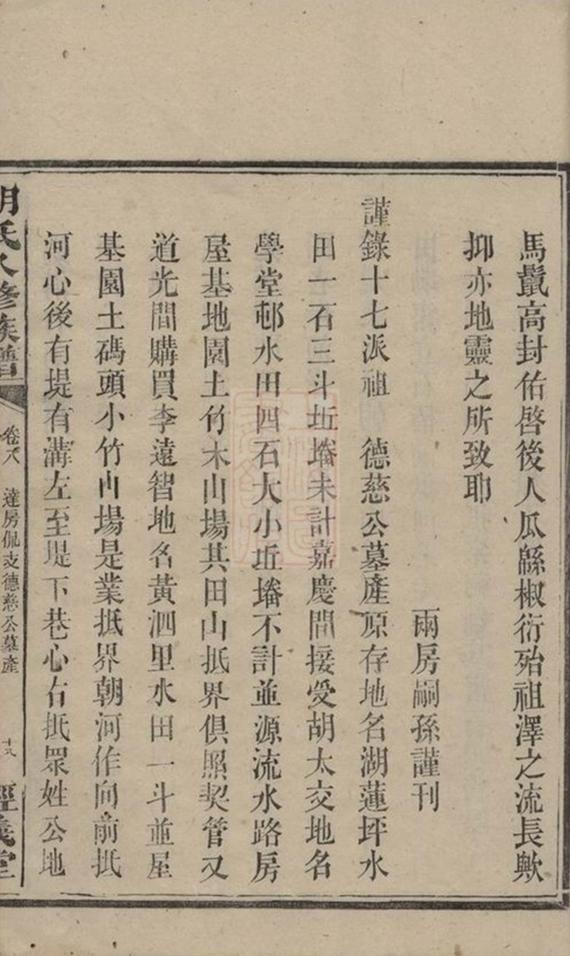 馬鬛高封佑啓後人瓜緜椒衍殆祖澤之流長歟
抑亦地靈之所致耶
兩房嗣孫謹刊
謹錄十七派祖　德慈公墓產原存地名湖蓮坪水
田一石三斗坵墦未計嘉慶間接受胡太交地名
學堂邨水田四石大小坵墦不計並源流水路房
屋基地園土竹木山場其田山抵界俱照契管又
道光間購買李遠智地名黃泗里水田一斗並屋
基園土碼頭小竹山場是業抵界朝河作向前抵
河心後有堤有溝左至堤下巷心右抵眾姓公地
胡氏八修族譜　卷八　達房侃支德慈公墓產　十八　經義堂